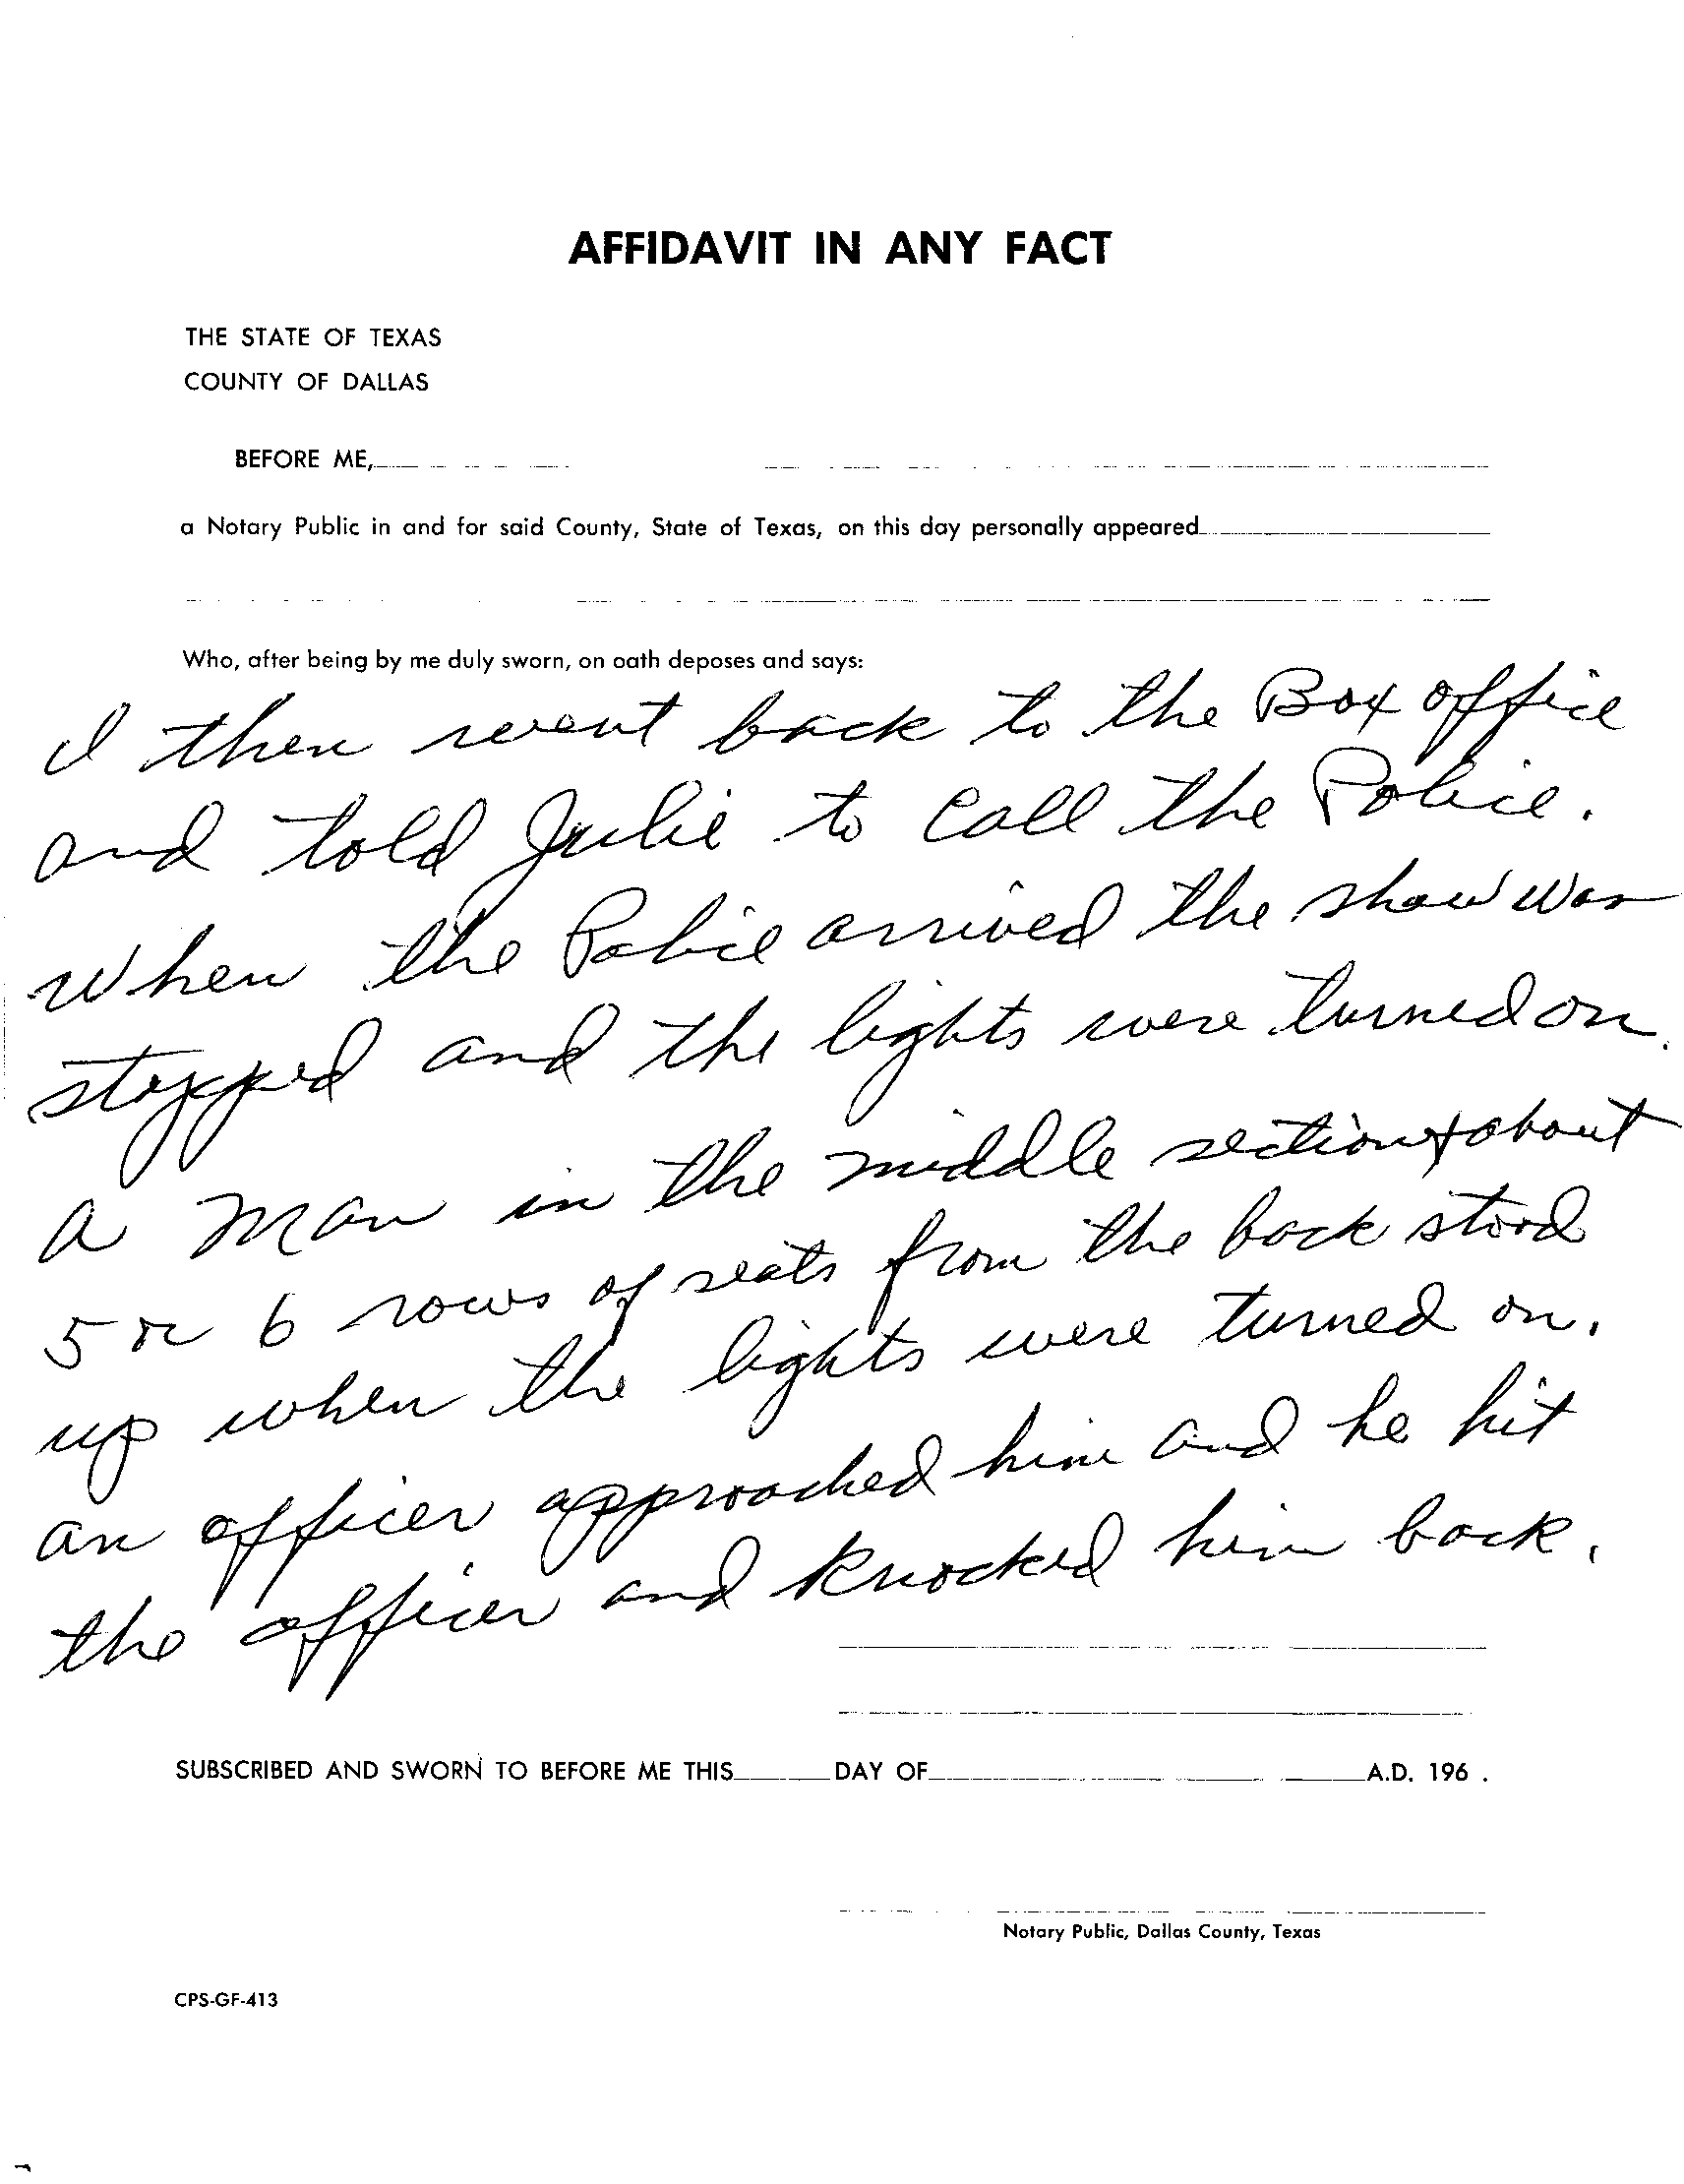 AFFIDAVIT IN ANY FACT
THE STATE OF TEXAS
COUNTY OF DALLAS
BEFORE ME,
a Notary Public in and for said County, State of Texas, on this day personally appeared
Who, after being by me duly sworn, on oath deposes and says:
I then went back to the Box office
and told Julie to call the Police.
When the Police arrived the show was
stopped and the lights were turned on.
a man in the middle section & about
5 or 6 rows of seats from the back stood
up when the lights were turned on.
an officer approached him and he hit
the officer and knocked him back.
SUBSCRIBED AND SWORN TO BEFORE ME THIS DAY OF A.D. 196 .
Notary Public, Dallas County, Texas
CPS-GF-413